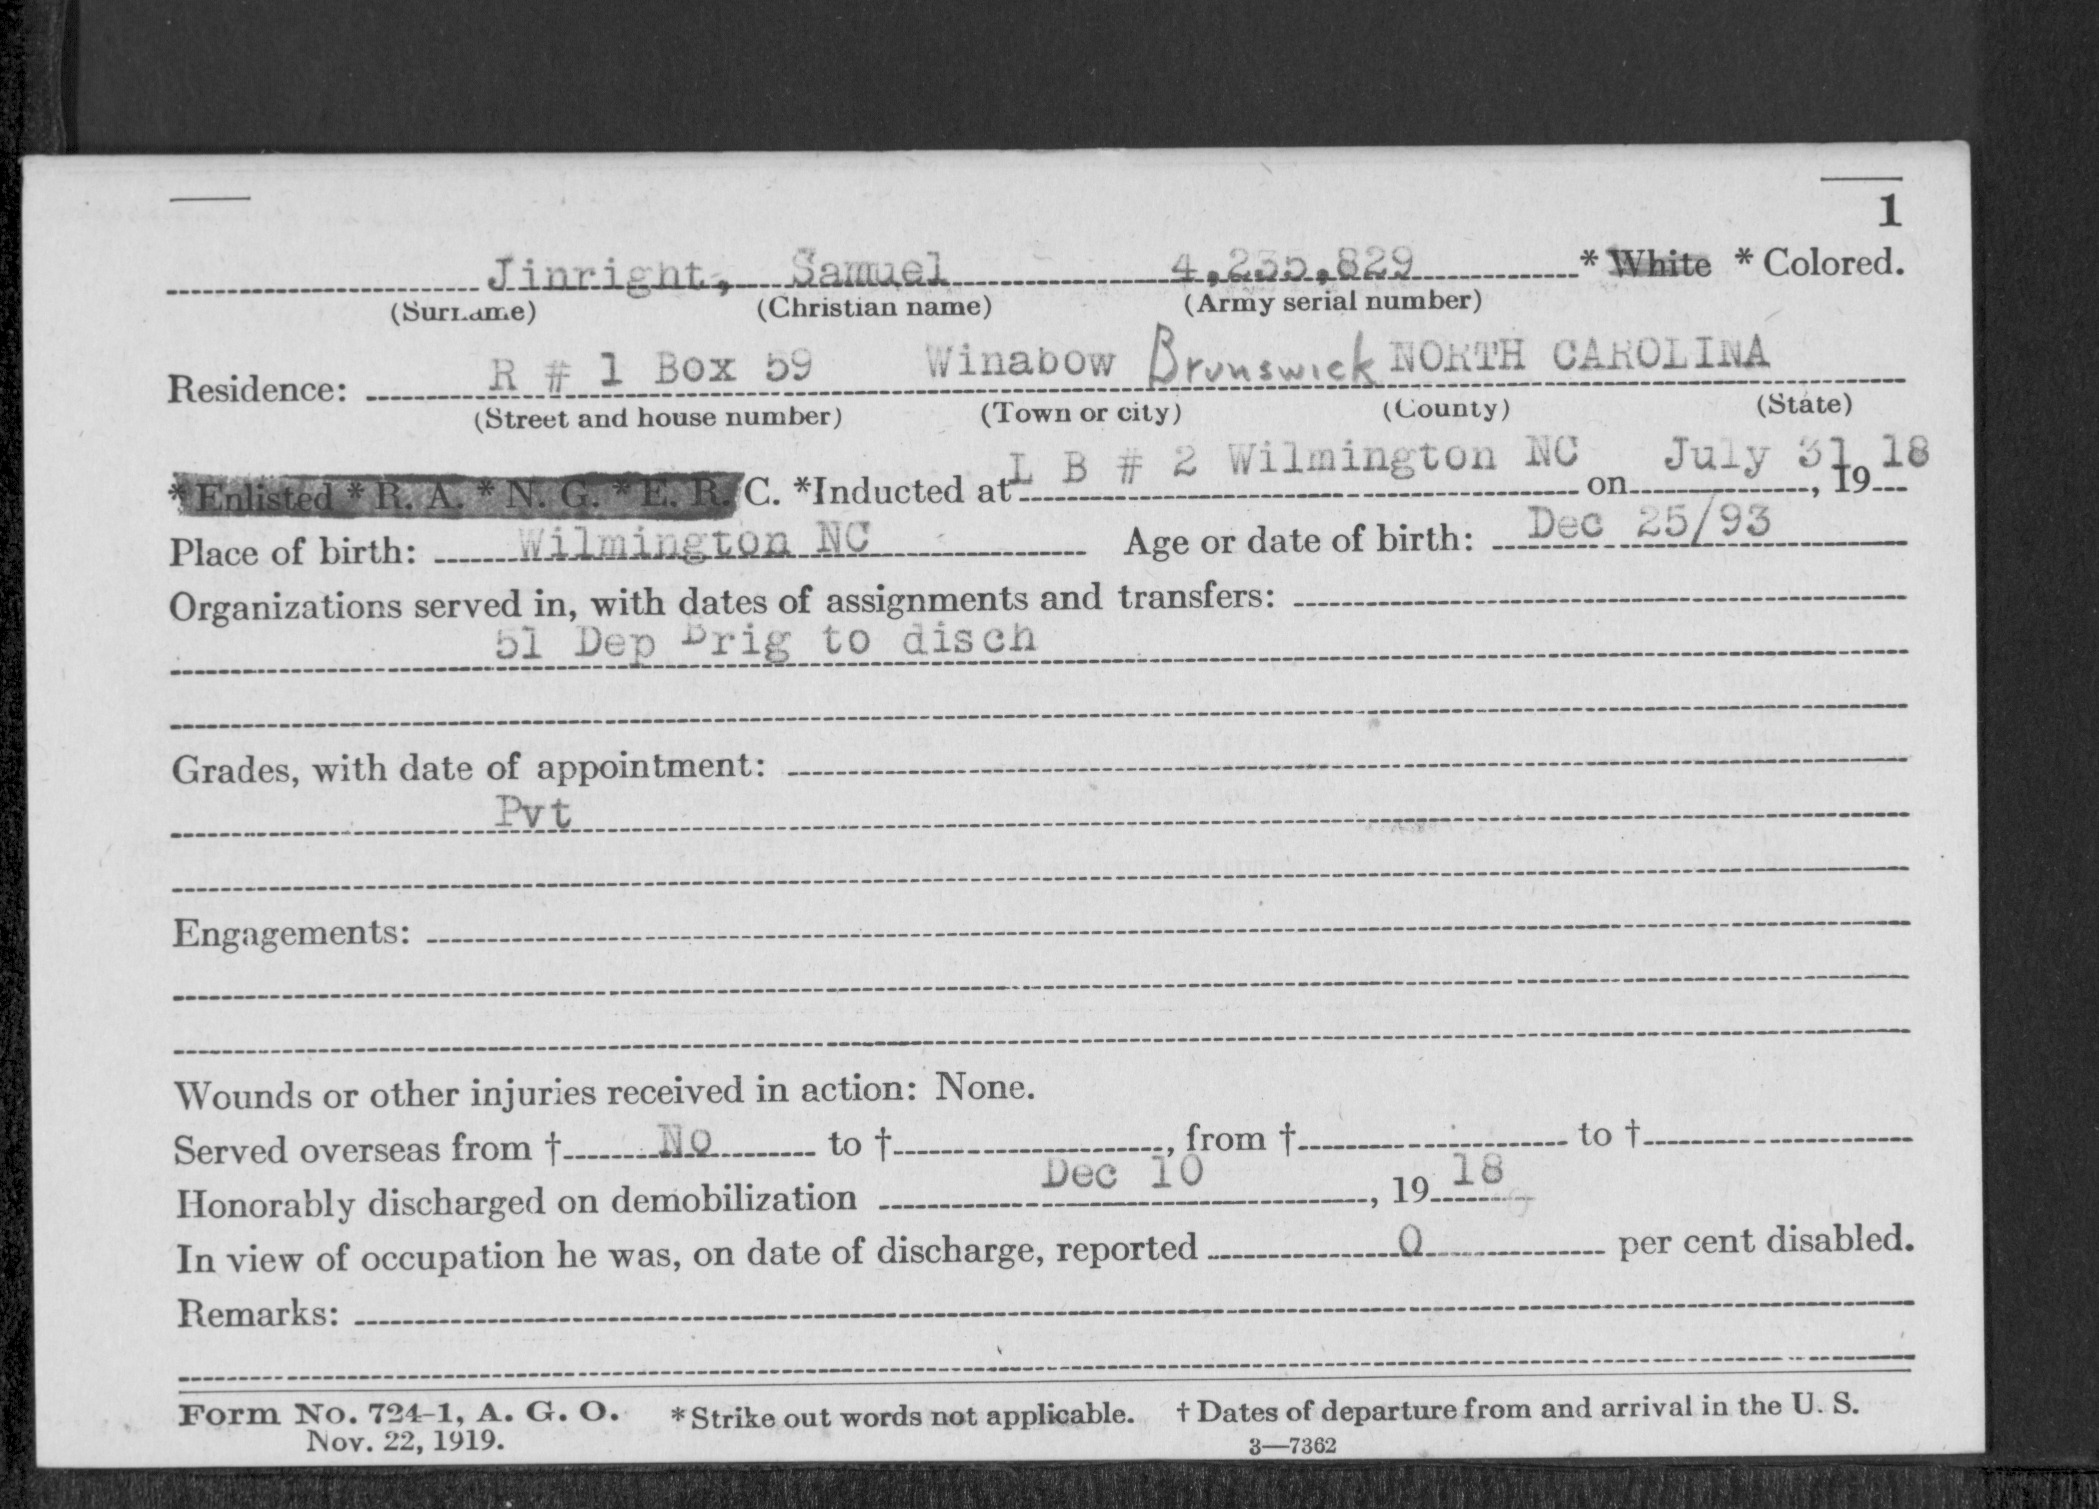 1
Jinright, Samuel 4,235,829 * White * Colored.
(Surname) (Christian name) (Army serial number)
Residence: R # 1 Box 59 Winabow Brunswick NORTH CAROLINA
(Street and house number) (Town or city) (County) (State)
* Enlisted * R. A. * N. G. * E. R. C. *Inducted at L B # 2 Wilmington NC on July 31, 1918
Place of birth: Wilmington NC Age or date of birth: Dec 25/93
Organizations served in, with dates of assignments and transfers:
51 Dep Brig to disch
Grades, with date of appointment:
Pvt
Engagements:
Wounds or other injuries received in action: None.
Served overseas from † No to †, from † to †
Honorably discharged on demobilization Dec 10, 1918
In view of occupation he was, on date of discharge, reported 0 per cent disabled.
Remarks:
Form No. 724-1, A. G. O. * Strike out words not applicable. † Dates of departure from and arrival in the U. S.
Nov. 22, 1919. 3—7362